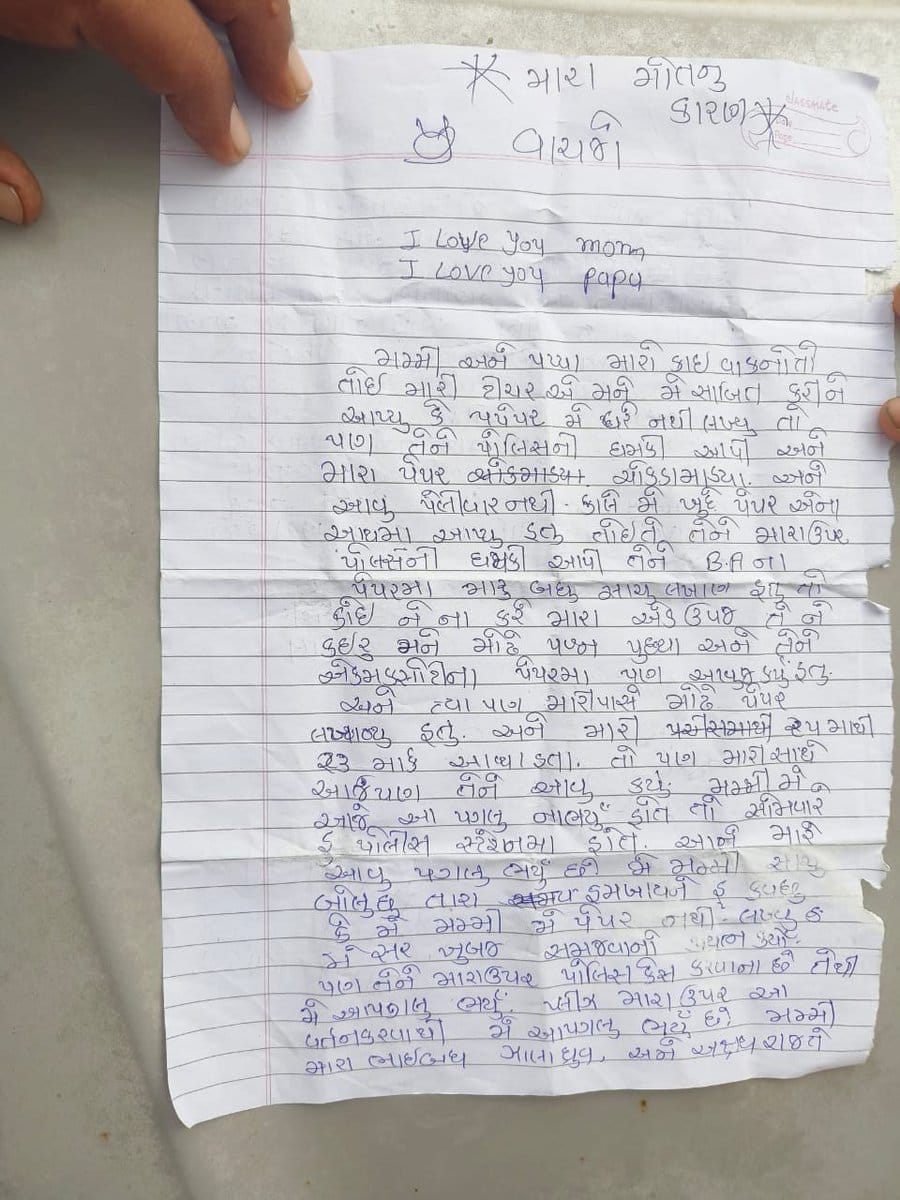 મારા મોતનુ
કારણ
classmate
Date
Page
વાચજો
I Love you mom
I LOVE you papa
મમ્મી અને પપ્પા મારો કાઇ વાકનોતો
તોઇ મારી ટીચર એ મને મે સાબિત કરીને
આપ્યુ કે પેપર મે ઘરે નથી લખ્યુ તો
પણ તેને પોલિસની ધમકી આપી અને
મારા પેપર ચોકડામાડ્યા. અને
આવુ પેલીવાર નથી. કાલે મે ખુદે પેપર એના
હાથમા આપ્યુ હતુ તોઇતે તેને મારાઉપર
પોલિસની ધમકી આપી તેને B.A ના
પેપરમા મારૂ બધુ સાચુ લખાણ હતુ તો
કોઇ ને ના કરે મારા એક ઉપજ તે ને
કહ્યુ મને મોઢે પ્રશ્ન પુછ્યા અને તેને
એકમકસોટીના પેપરમા પણ આવુજ કર્યુ હતુ.
અને ત્યા પણ મારીપાસે મોઢે પેપર
લખાવ્યુ હતુ. અને મારી ૨૫ માથી
૨૩ માર્ક આવ્યા હતા. તો પણ મારી સાથે
આજેપણ તેને આવુ કર્યુ. મમ્મી મે
આજે આ પગલુ નાભર્યુ હોત તો સોમવારે
હુ પોલીસ સ્ટેશનમા હોત. આને મારે
આવુ પગલુ ભર્યુ છે. મે મમ્મી સાચુ
બોલુછુ તારા હમખાયને હુ કહુછુ
કે મે મમ્મી મે પેપર નથી લખ્યુ
મે સર ખુબજ સમજવાનો પ્રયત્ન કર્યો.
પણ તેને મારાઉપર પોલિસ કેસ કરવાના છે તેથી
મે આપગલુ ભર્યુ. પ્લીઝ મારા ઉપર આ
વર્તનકરવાથી મે આપગલુ ભર્યુ છે. મમ્મી
મારા ભાઇબંધ ધ્રુવ, અને